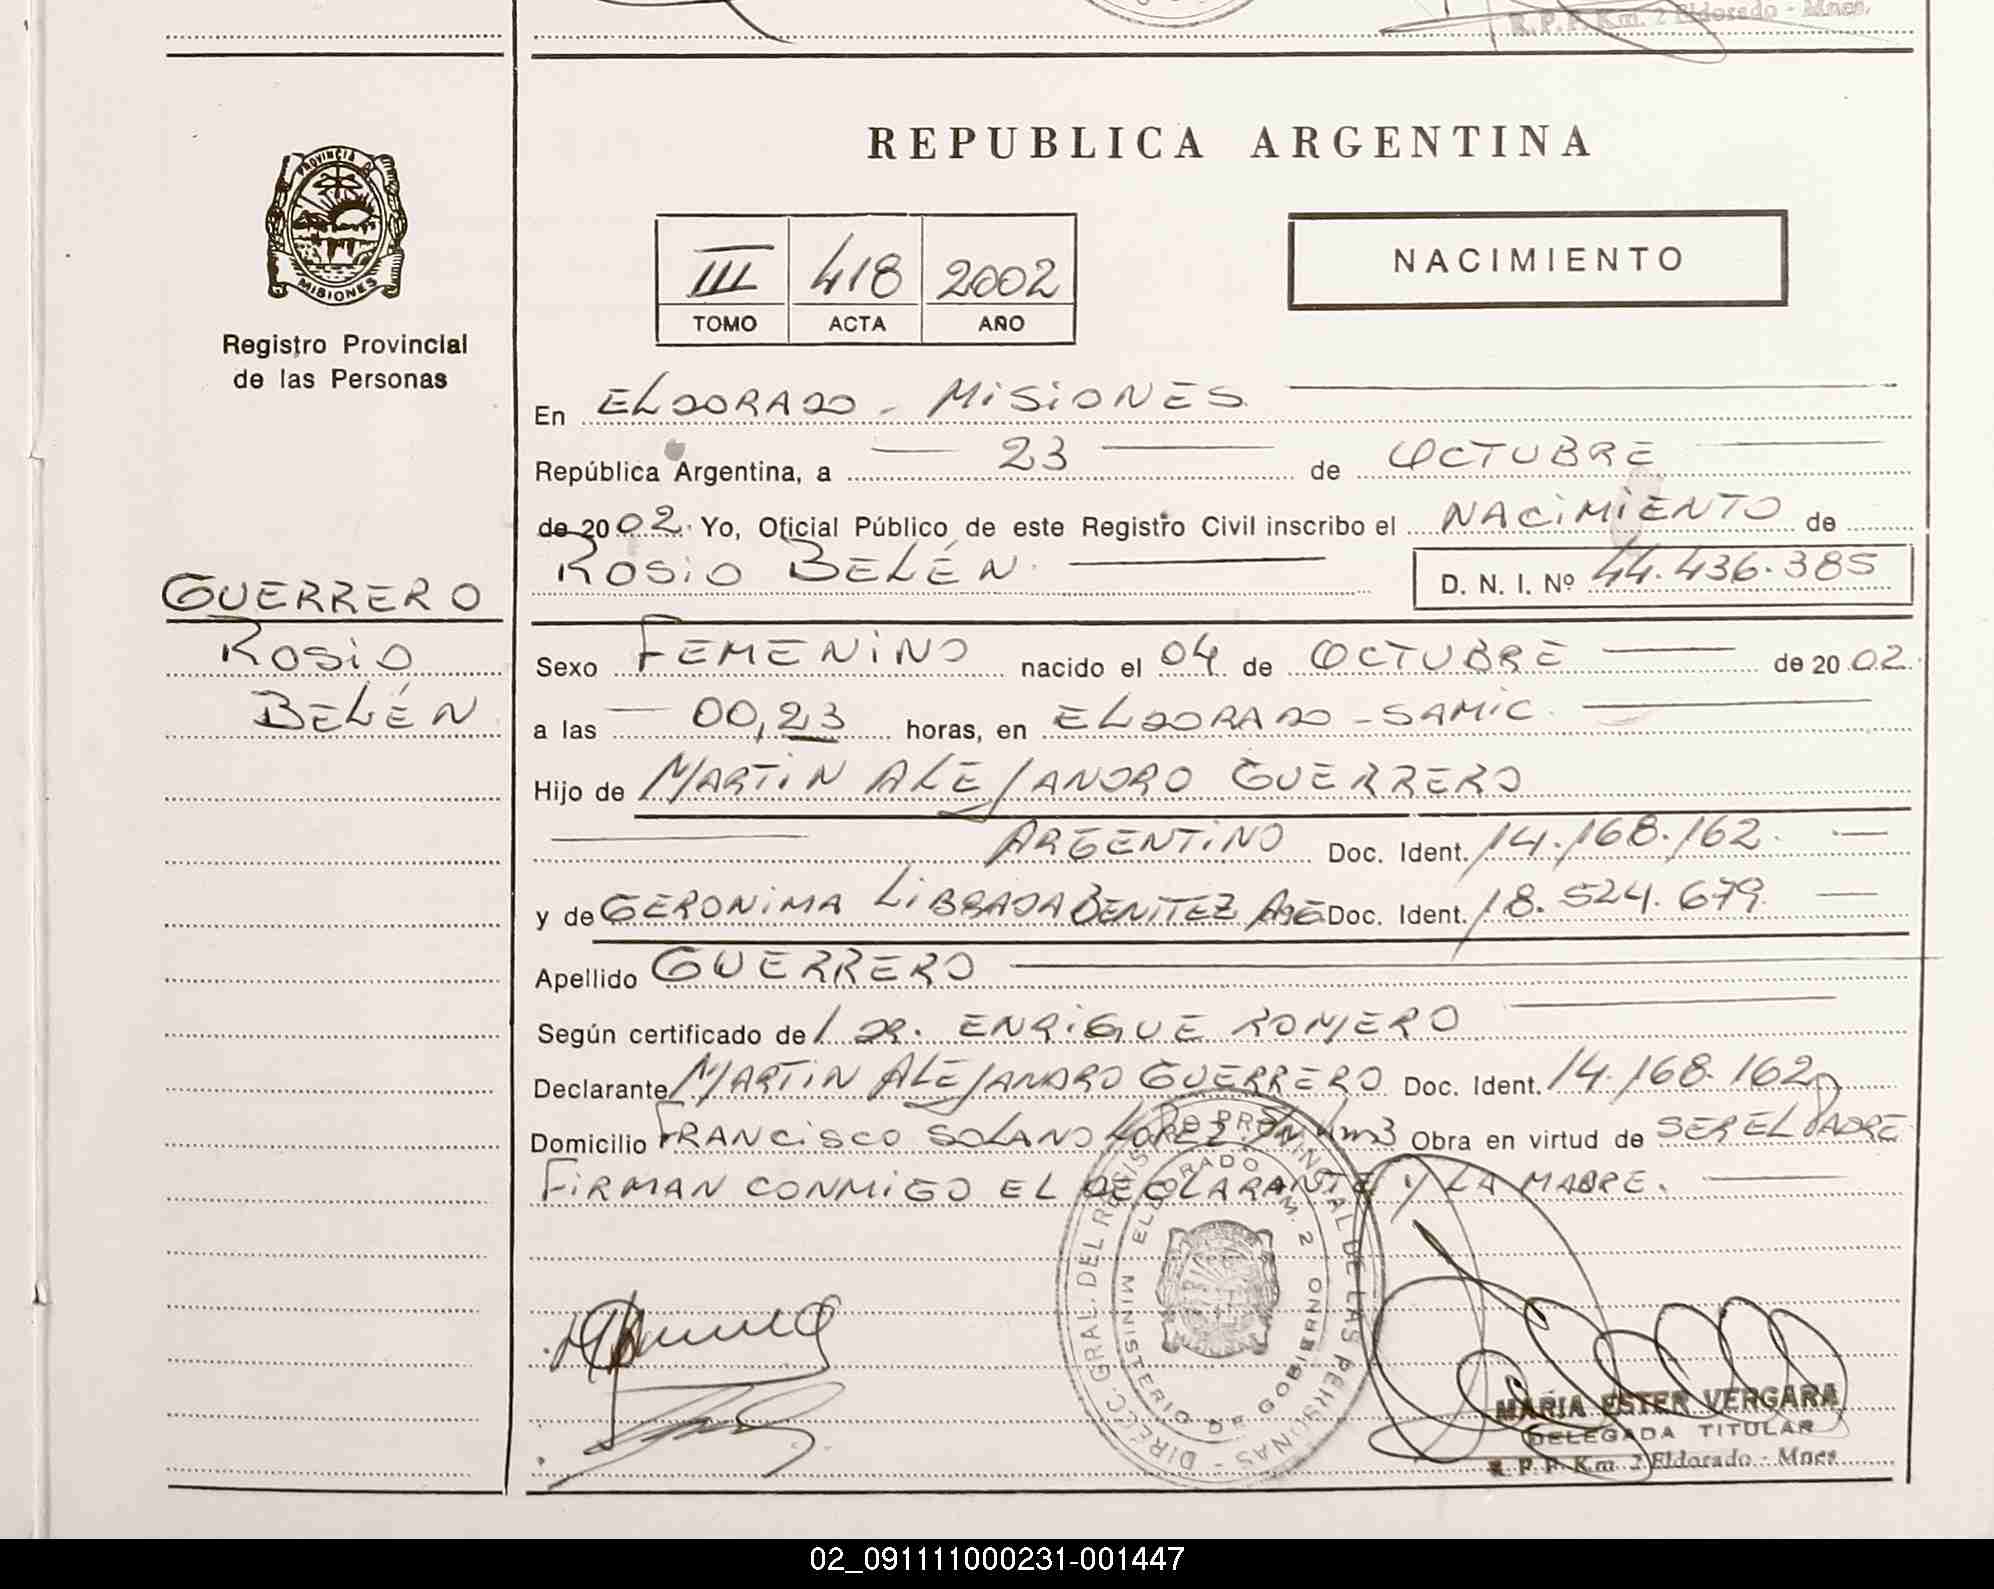 R.P.P. Km. 2 Eldorado - Mnes.
REPUBLICA ARGENTINA
PROVINCIA D
MISIONES
Registro Provincial
de las Personas
III 418 2002
TOMO ACTA AÑO
NACIMIENTO
En ELDORADO - MISIONES
República Argentina, a 23 de OCTUBRE
de 2002. Yo, Oficial Público de este Registro Civil inscribo el NACIMIENTO de
ROSIO BELÉN. D. N. I. Nº 44.436.385
GUERRERO
ROSIO
BELÉN
Sexo FEMENINO nacido el 04 de OCTUBRE de 2002.
a las 00,23 horas, en ELDORADO - SAMIC.
Hijo de MARTIN ALEJANDRO GUERRERO
ARGENTINO Doc. Ident. 14.168.162.
y de GERONIMA LIBRADA BENITEZ ARG Doc. Ident. 18.524.679
Apellido GUERRERO
Según certificado de DR. ENRIQUE ROMERO
Declarante MARTIN ALEJANDRO GUERRERO Doc. Ident. 14.168.162
Domicilio FRANCISCO SOLANO LOPEZ S/N Km3 Obra en virtud de SER EL PADRE
FIRMAN CONMIGO EL DECLARANTE Y LA MADRE.
DIRECC. GRAL. DEL REGISTRO PROVINCIAL DE LAS PERSONAS -
MINISTERIO DE GOBIERNO
ELDORADO KM. 2
MARIA ESTER VERGARA
DELEGADA TITULAR
R. P. P. Km. 2 Eldorado - Mnes.
02_091111000231-001447